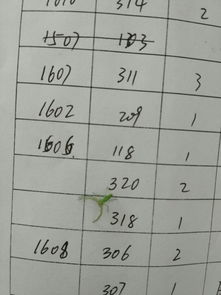 1010 314 2
1507 1303
1607 311 3
1602 209 1
1606 118 1
320 2
318 1
1608 306 2
307 1